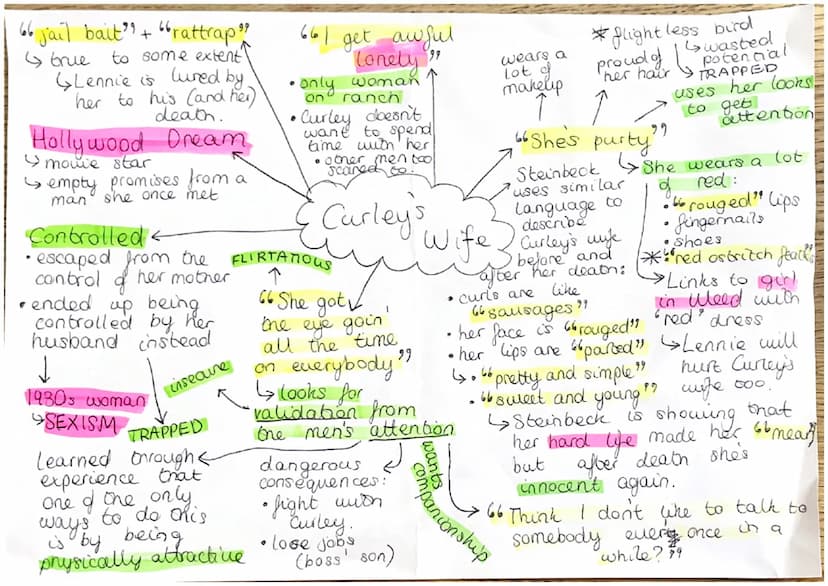 "jail bait" + "rattrap"
↳ true to some extent
↳ Lennie is lured by
her to his (and her)
death.
Hollywood Dream
↳ movie star
↳ empty promises from a
man she once met
Controlled
• escaped from the
control of her mother
• ended up being
controlled by her
husband instead
1930s woman
↳ SEXISM
TRAPPED
learned through
experience that
one of the only
ways to do this
is by being
physically attractive
"I get awful
lonely"
• only woman
on ranch
• Curley doesn't
want to spend
time with her
• other men too
scared to.
Curley's
Wife
FLIRTATIOUS
"She got
the eye goin'
all the time
on everybody"
insecure
↳ looks for
validation from
the men's attention
dangerous
consequences:
• fight with
Curley.
• lose jobs
(boss' son)
wants
companionship
wears a
lot of
makeup
proud of
her hair
* flightless bird
↳ wasted
potential
↳ TRAPPED
uses her looks
to get
attention
"She's purty"
↳ She wears a lot
of red:
• "rouged" lips
• fingernails
• shoes
* • "red ostritch
↳ Links to girl
in Weed with
"red" dress
↳ Lennie will
hurt Curley's
wife too.
Steinbeck
uses similar
language to
describe
Curley's wife
before and
after her death:
• curls are like
"sausages"
• her face is "rouged"
• her lips are "parted"
↳ • "pretty and simple"
• "sweet and young"
↳ Steinbeck is showing that
her hard life made her "mean"
but after death she's
innocent again.
"Think I don't like to talk to
somebody ever'once in a
while?"